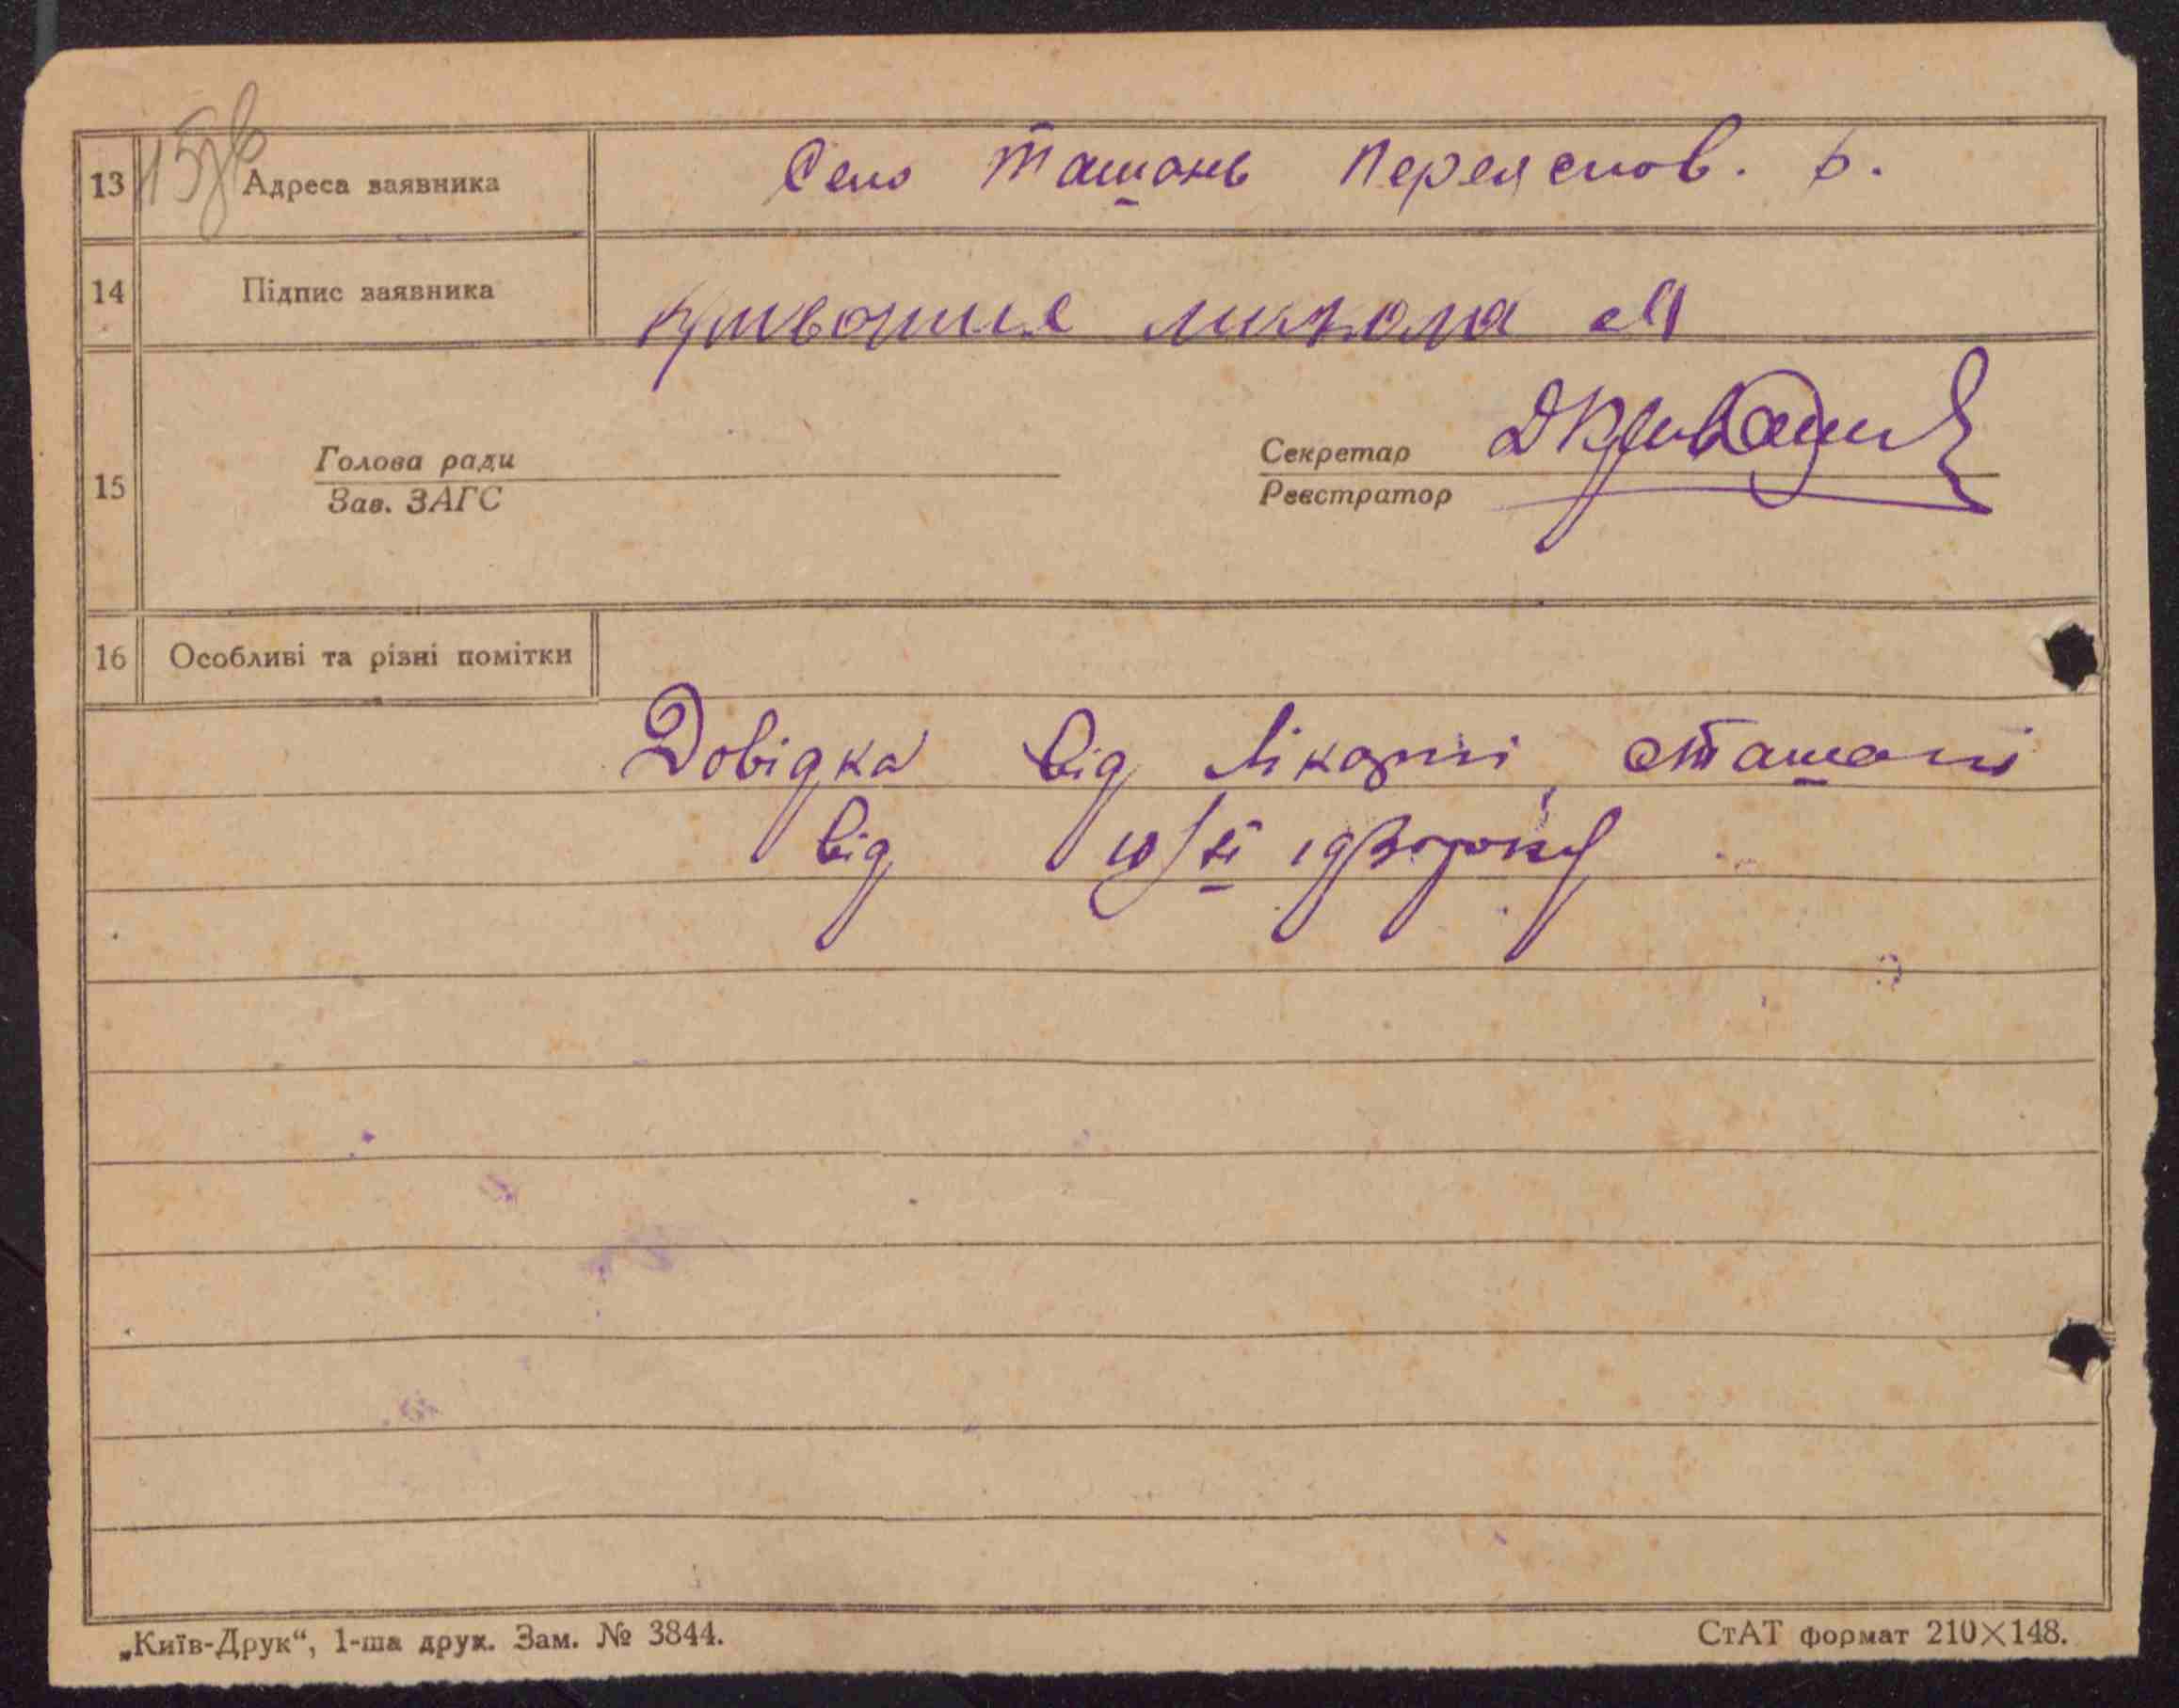 158
13 Адреса заявника Село Ташань Переяслов. р.
14 Підпис заявника микола М
15 Голова ради
Зав. ЗАГС
Секретар
Реєстратор
16 Особливі та різні помітки
Довідка від Лікарні Ташані
від 10/XI
„Київ-Друк“, 1-ша друк. Зам. № 3844. СтАТ формат 210×148.